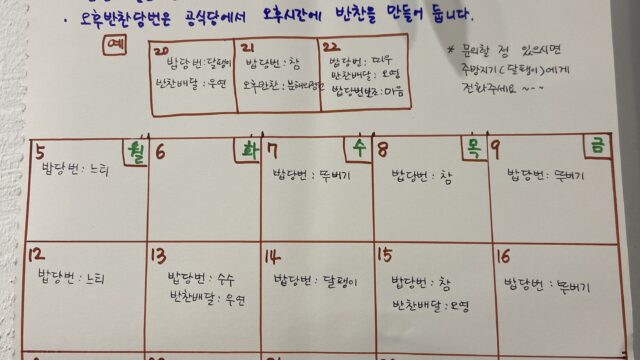 · 오후반찬당번은 공식당에서 오후시간에 반찬을 만들어 둡니다.
예
20
밥당번:달팽이
반찬배달:우연
21
밥당번:참
오후반찬:
22
밥당번:띠우
반찬배달:오영
밥당번보조:마음
* 문의할 점 있으시면
주방지기(달팽이)에게
전화주세요~~~
5 월
밥당번:느티
6 화
7 수
밥당번:뚜버기
8 목
밥당번:참
9 금
밥당번:뚜버기
12
밥당번:느티
13
밥당번:수수
반찬배달:우연
14
밥당번:달팽이
15
밥당번:참
반찬배달:오영
16
밥당번:뚜버기